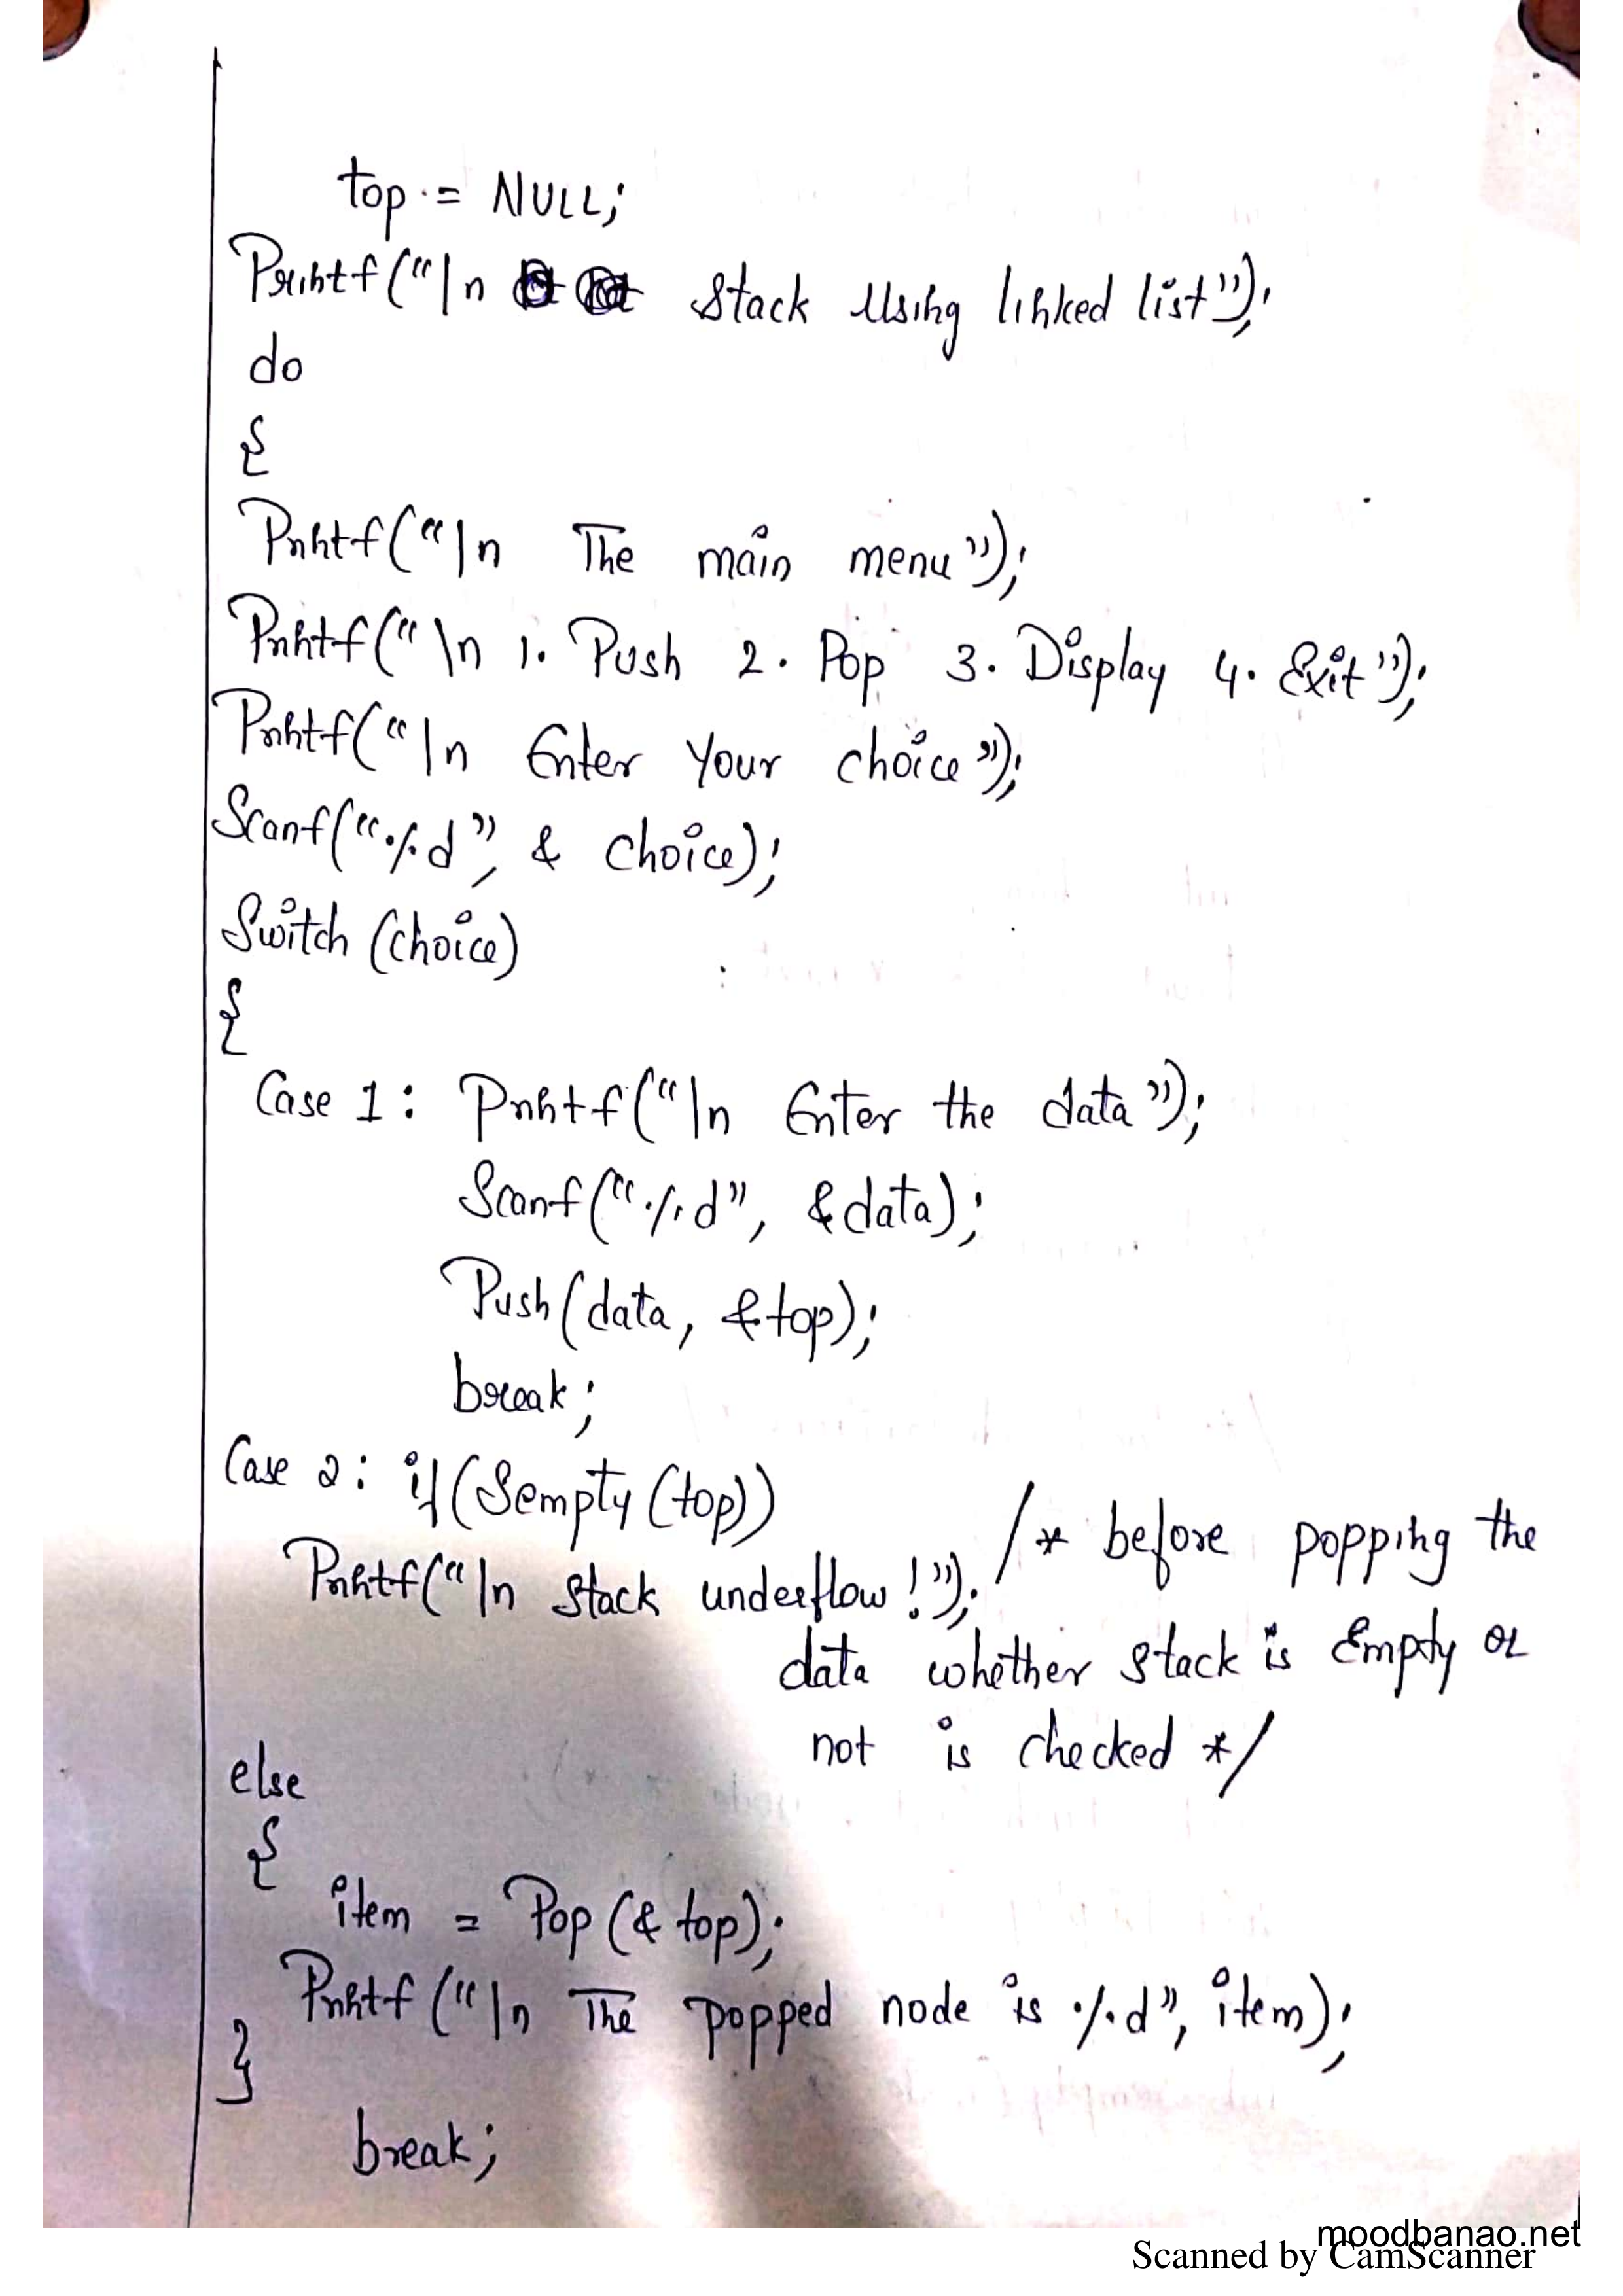 top = NULL;
Printf("\n Stack Using linked list");
do
{
Printf("\n The main menu");
Printf("\n 1. Push 2. Pop 3. Display 4. Exit");
Printf("\n Enter Your choice");
Scanf("%d", & choice);
Switch (choice)
{
Case 1: Printf("\n Enter the data");
Scanf("%d", &data);
Push(data, &top);
break;
Case 2: if(Sempty(top))
Printf("\n Stack underflow!"); /* before popping the
data whether stack is Empty or
not is checked */
else
{
item = Pop(& top);
Printf("\n The popped node is %d", item);
}
break;
moodbanao.net
Scanned by CamScanner